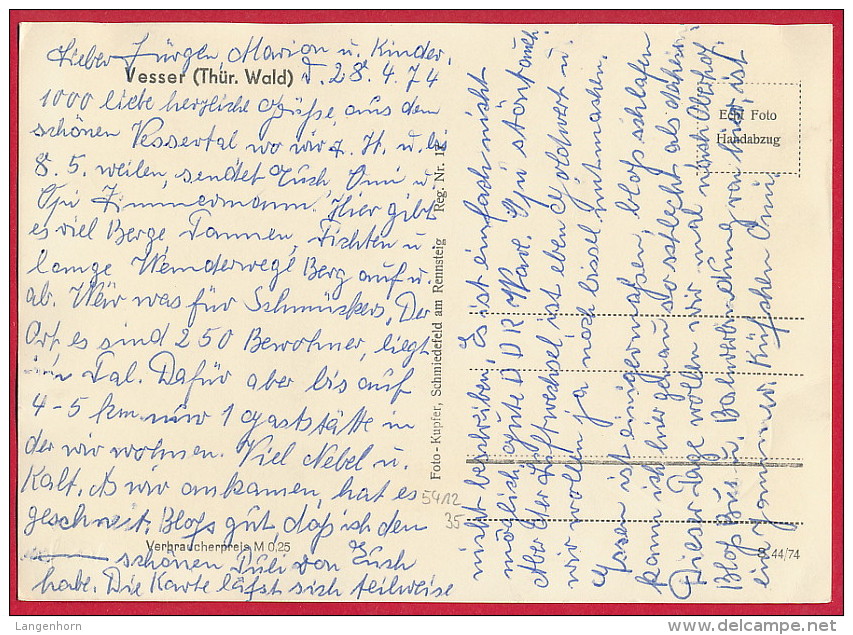 Lieber Jürgen, Marion u. Kinder,
Vesser (Thür. Wald) d. 28. 4. 74
1000 liebe herzliche Grüße, aus dem
schönen Vessertal wo wir z. Zt. u. bis
8. 5. weilen, sendet Euch, Omi u.
Opi Zimmermann. Hier gibt
es viel Berge, Tannen, Fichten u.
lange Wanderwege Berg auf u.
ab. Wär was für Schmückers. Der
Ort es sind 250 Bewohner, liegt
im Tal. Dafür aber bis auf
4-5 km nur 1 Gaststätte in
der wir wohnen. Viel Nebel u.
Kalt. Als wir ankamen, hat es
geschneit. Bloß gut, daß ich den
schönen Pulli von Euch
habe. Die Karte läßt sich teilweise
Verbraucherpreis M 0,25
Foto-Kupfer, Schmiedefeld am Rennsteig Reg. Nr. 17
5412
35
nicht beschreiben, Es ist einfach nicht
möglich gute DDR Ware. Opi stöhnt auch.
Aber der Luftwechsel ist eben
wir wollen ja noch bissel mitmachen.
Essen ist einigermaßen, bloß schlafen
kann ich hier genau so schlecht als daheim.
Dieser Tage wollen wir mal nach Oberhof.
Bloß Bus u. Bahnverbindung von hier, ist
ein Jammer. Küßchen Omi.
Echt Foto
Handabzug
44/74
Langenhorn
delcampe.net